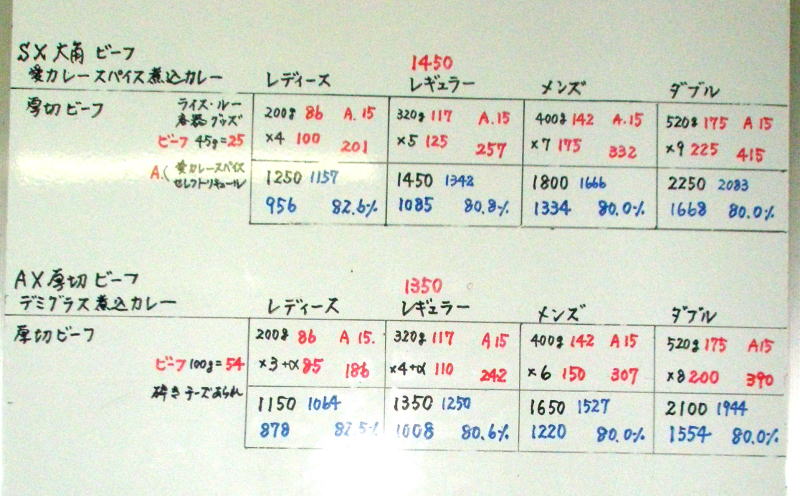 SX 大角 ビーフ 1450
愛カレースパイス煮込カレー レディース レギュラー メンズ ダブル
厚切ビーフ ライス・ルー 200g 86 A.15 320g 117 A.15 400g 142 A.15 520g 175 A 15
容器 グッズ
ビーフ 45g=25 ×4 100 201 ×5 125 257 ×7 175 332 ×9 225 415
A.( 愛カレースパイス 1250 1157 1450 1342 1800 1666 2250 2083
セレクトリキュール 956 82.6% 1085 80.8% 1334 80.0% 1668 80.0%
AX 厚切 ビーフ 1350
デミグラス煮込カレー レディース レギュラー メンズ ダブル
厚切ビーフ 200g 86 A 15. 320g 117 A 15 400g 142 A 15 520g 175 A15
ビーフ 100g=54 ×3+α 85 186 ×4+α 110 242 ×6 150 307 ×8 200 390
砕きチーズあられ 1150 1064 1350 1250 1650 1527 2100 1944
878 82.5% 1008 80.6% 1220 80.0% 1554 80.0%